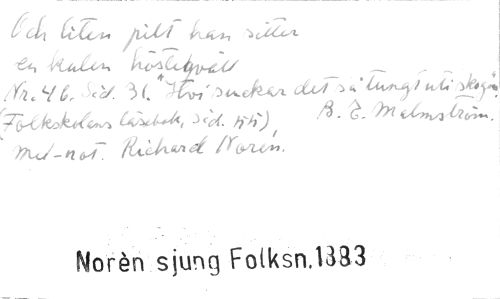 Och liten pilt han sitter
en kulen höstqväll
Nr. 46. Sid. 31. "Hvi suckar det så tungt uti skogen
(Folkskolans läsebok, sid. 55), B. E. Malmström.
med not. Richard Noren.
Norèn sjung Folksn.1883